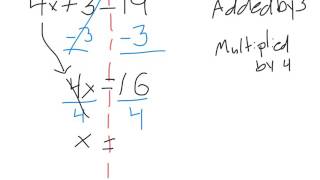 4x+3=19
Added by 3
-3 -3
Multiplied
by 4
4x=16
4 4
x =